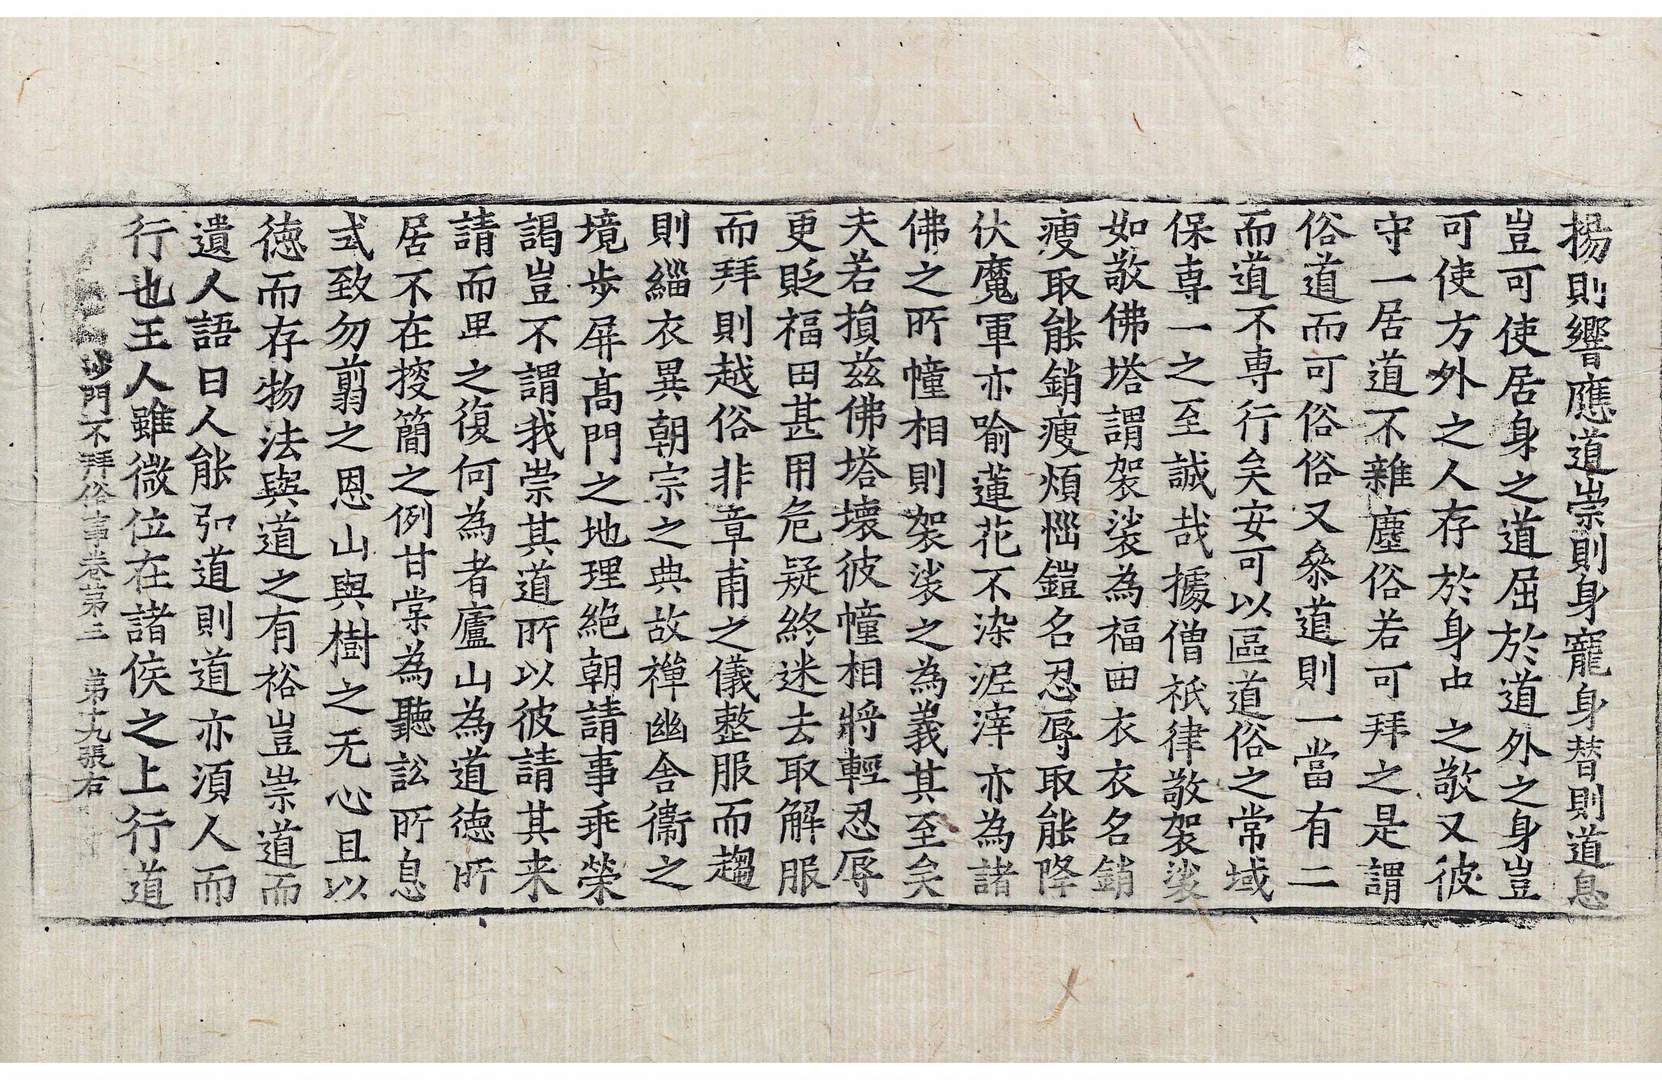 揚則響應道崇則身寵身替則道息
豈可使居身之道屈於道外之身豈
可使方外之人存於身中之敬又彼
守一居道不雜塵俗若可拜之是謂
俗道而可俗俗又叅道則一當有二
而道不専行矣安可以區道俗之常域
保専一之至誠哉據僧祇律敬袈裟
如敬佛塔謂袈裟為福田衣衣名銷
瘦取能銷瘦煩惱鎧名忍辱取能降
伏魔軍亦喻蓮花不染泥滓亦為諸
佛之所幢相則袈裟之為義其至矣
夫若損茲佛塔壊彼幢相將輕忍辱
更貶福田甚用危疑終迷去取解服
而拜則越俗非章甫之儀整服而趨
則緇衣異朝宗之典故禪幽舍衞之
境步屏髙門之地理絶朝請事乖榮
謁豈不謂我崇其道所以彼請其来
請而卑之復何為者廬山為道德所
居不在搜簡之例甘棠為聽訟所息
式致勿翦之恩山與樹之无心且以
德而存物法與道之有裕豈崇道而
遺人語曰人能弘道則道亦湏人而
行也王人雖微位在諸侯之上行道
沙門不拜俗事卷第三　第十九張右